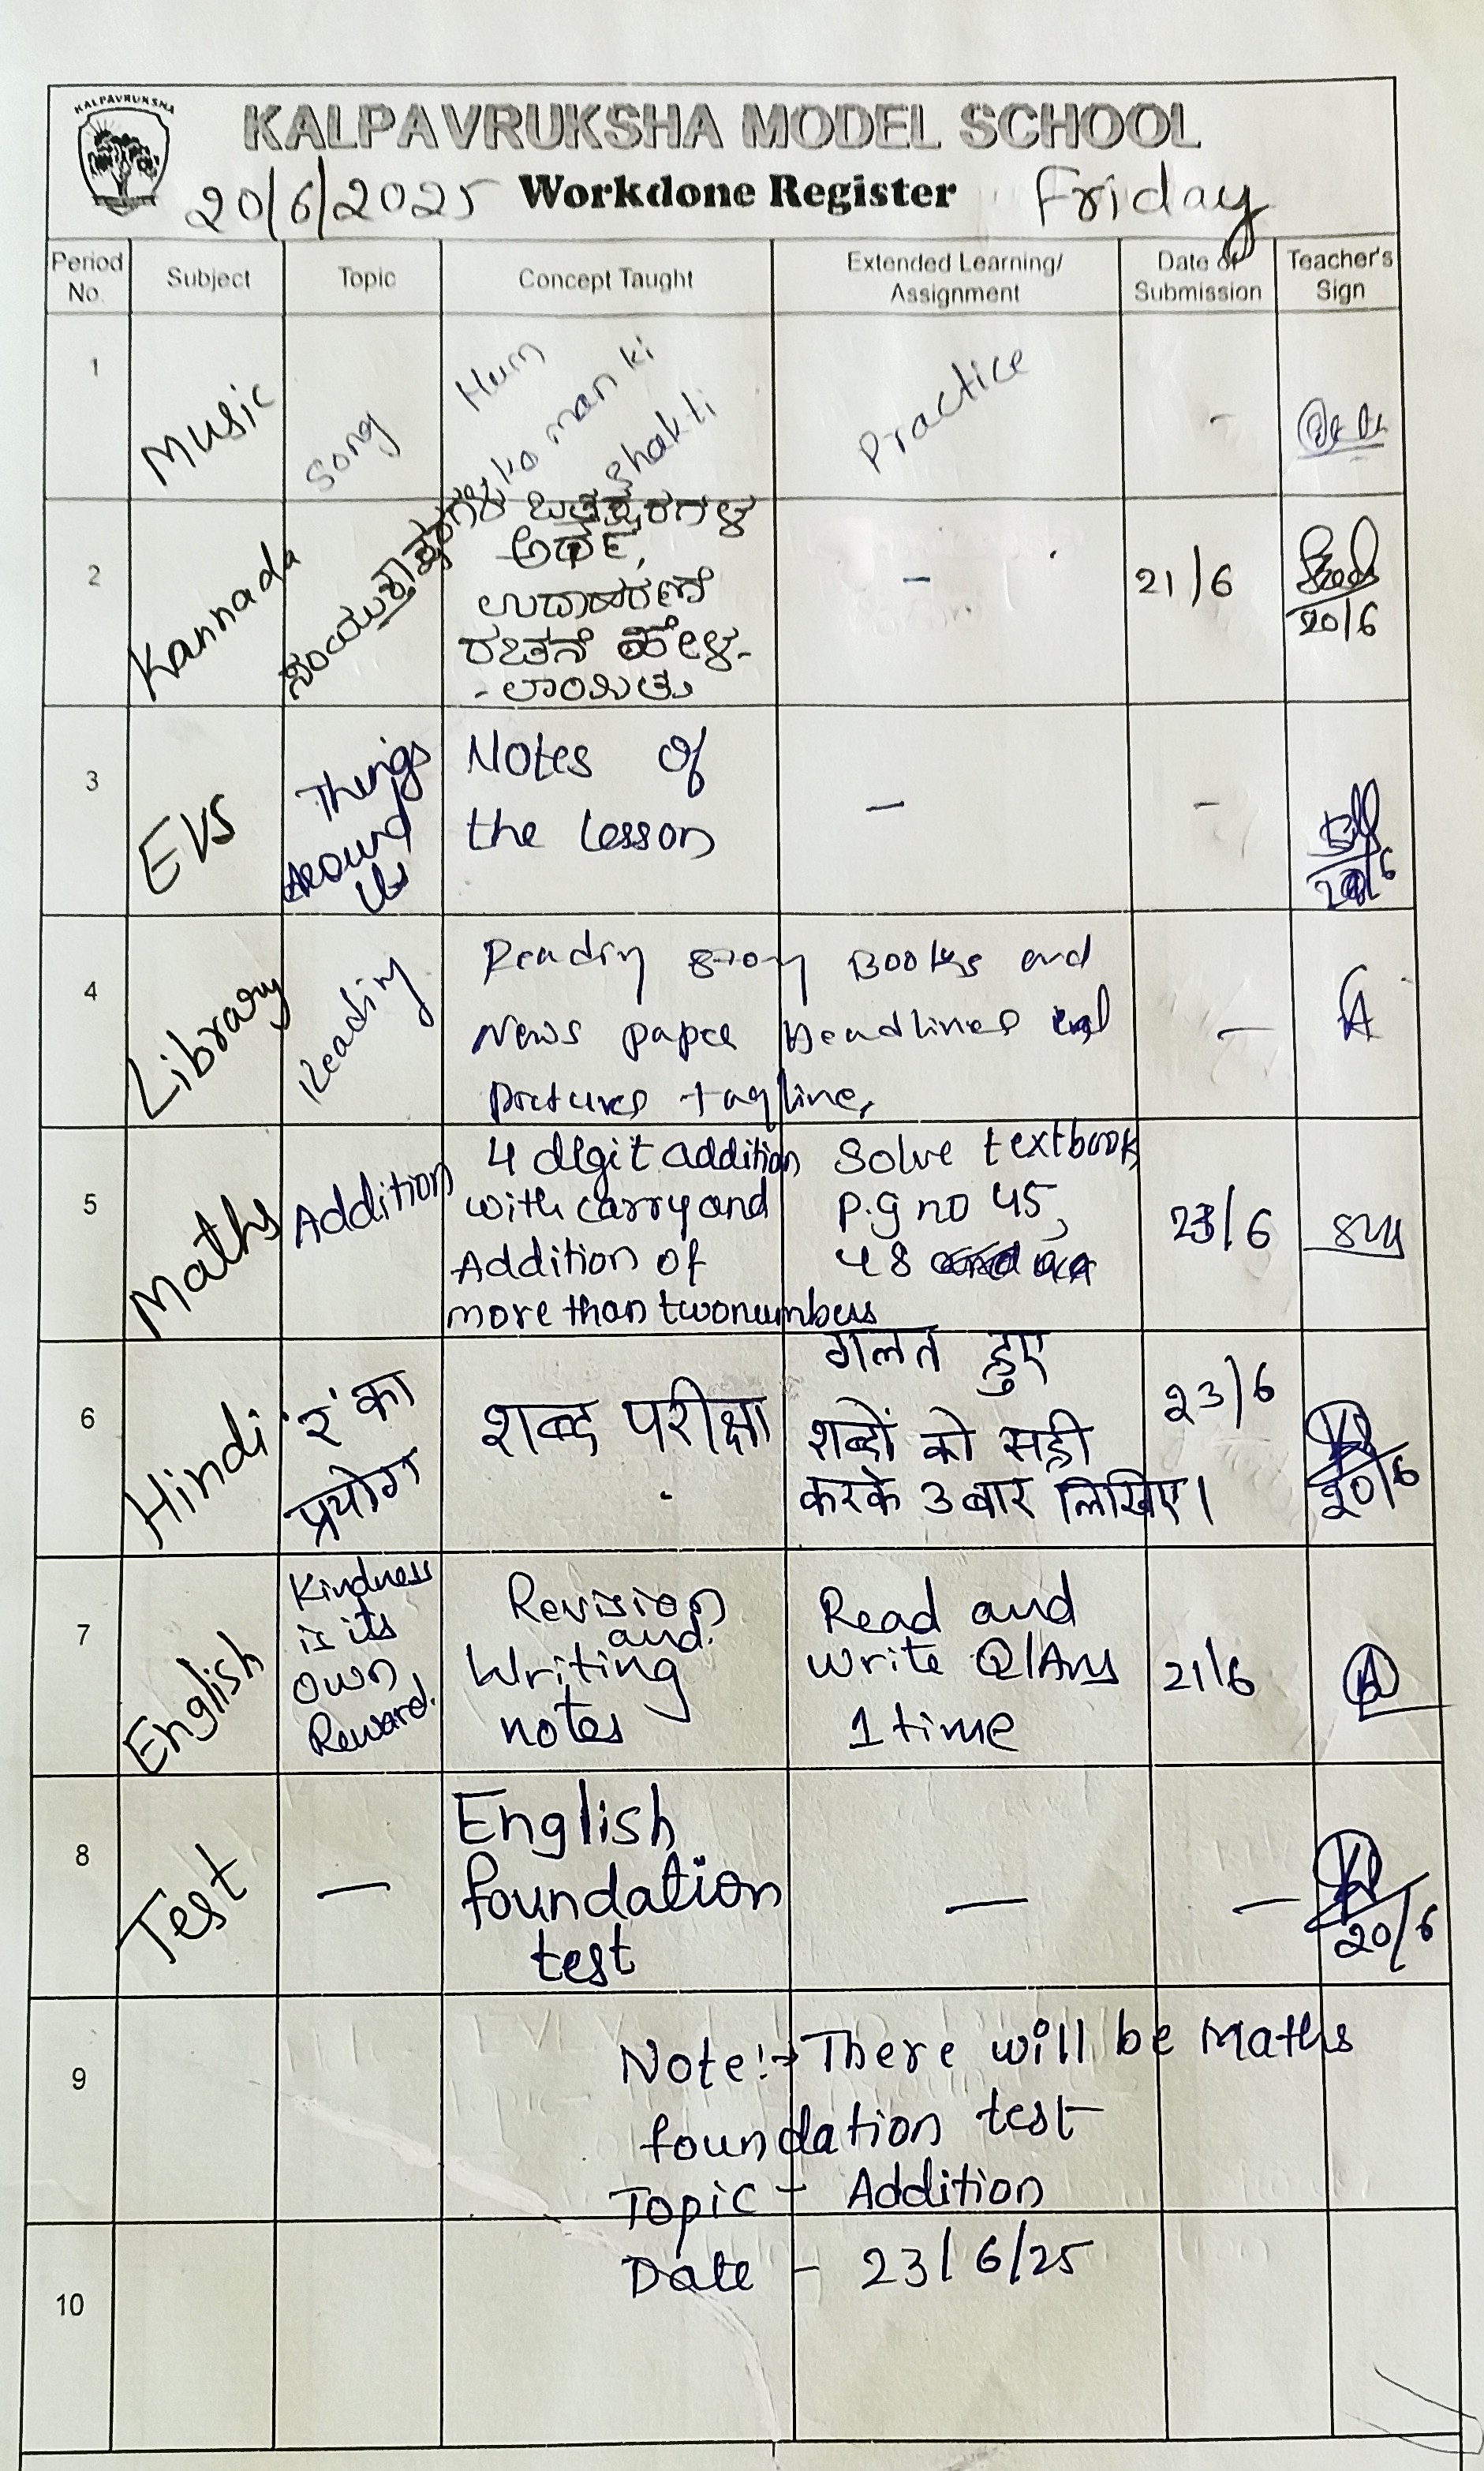 KALPAVRUKSHA
KALPAVRUKSHA MODEL SCHOOL
20/6/2025 Workdone Register Friday
Period No. Subject Topic Concept Taught Extended Learning/ Assignment Date of Submission Teacher's Sign
1 Music Song Hum ko man ki shakti Practice -
2 Kannada ಸಂಯುಕ್ತಾಕ್ಷರಗಳು ಒತ್ತಕ್ಷರಗಳ
ಅರ್ಥ,
ಉದಾಹರಣೆ
ರಚನೆ ಹೇಳ-
-ಲಾಯಿತು
- 21/6 20/6
3 EVS Things Around Us
Notes of
the lesson
- - 20/6
4 Library Reading
Reading story Books and
News paper Headlines and
pictures tagline,
-
5 Maths Addition
4 digit addition
with carry and
Addition of
more than two numbers
Solve textbook
P.g no 45,
48
23/6
6 Hindi 'र' का
प्रयोग
शब्द परीक्षा
गलत हुए
शब्दों को सही
करके 3 बार लिखिए।
23/6
20/6
7 English
Kindness
is its
own
Reward.
Revision
and
Writing
notes
Read and
write Q/Ans
1 time
21/6
8 Test -
English
foundation
test
- -
20/6
9
Note:→ There will be Maths
foundation test
Topic - Addition
10
Date - 23/6/25